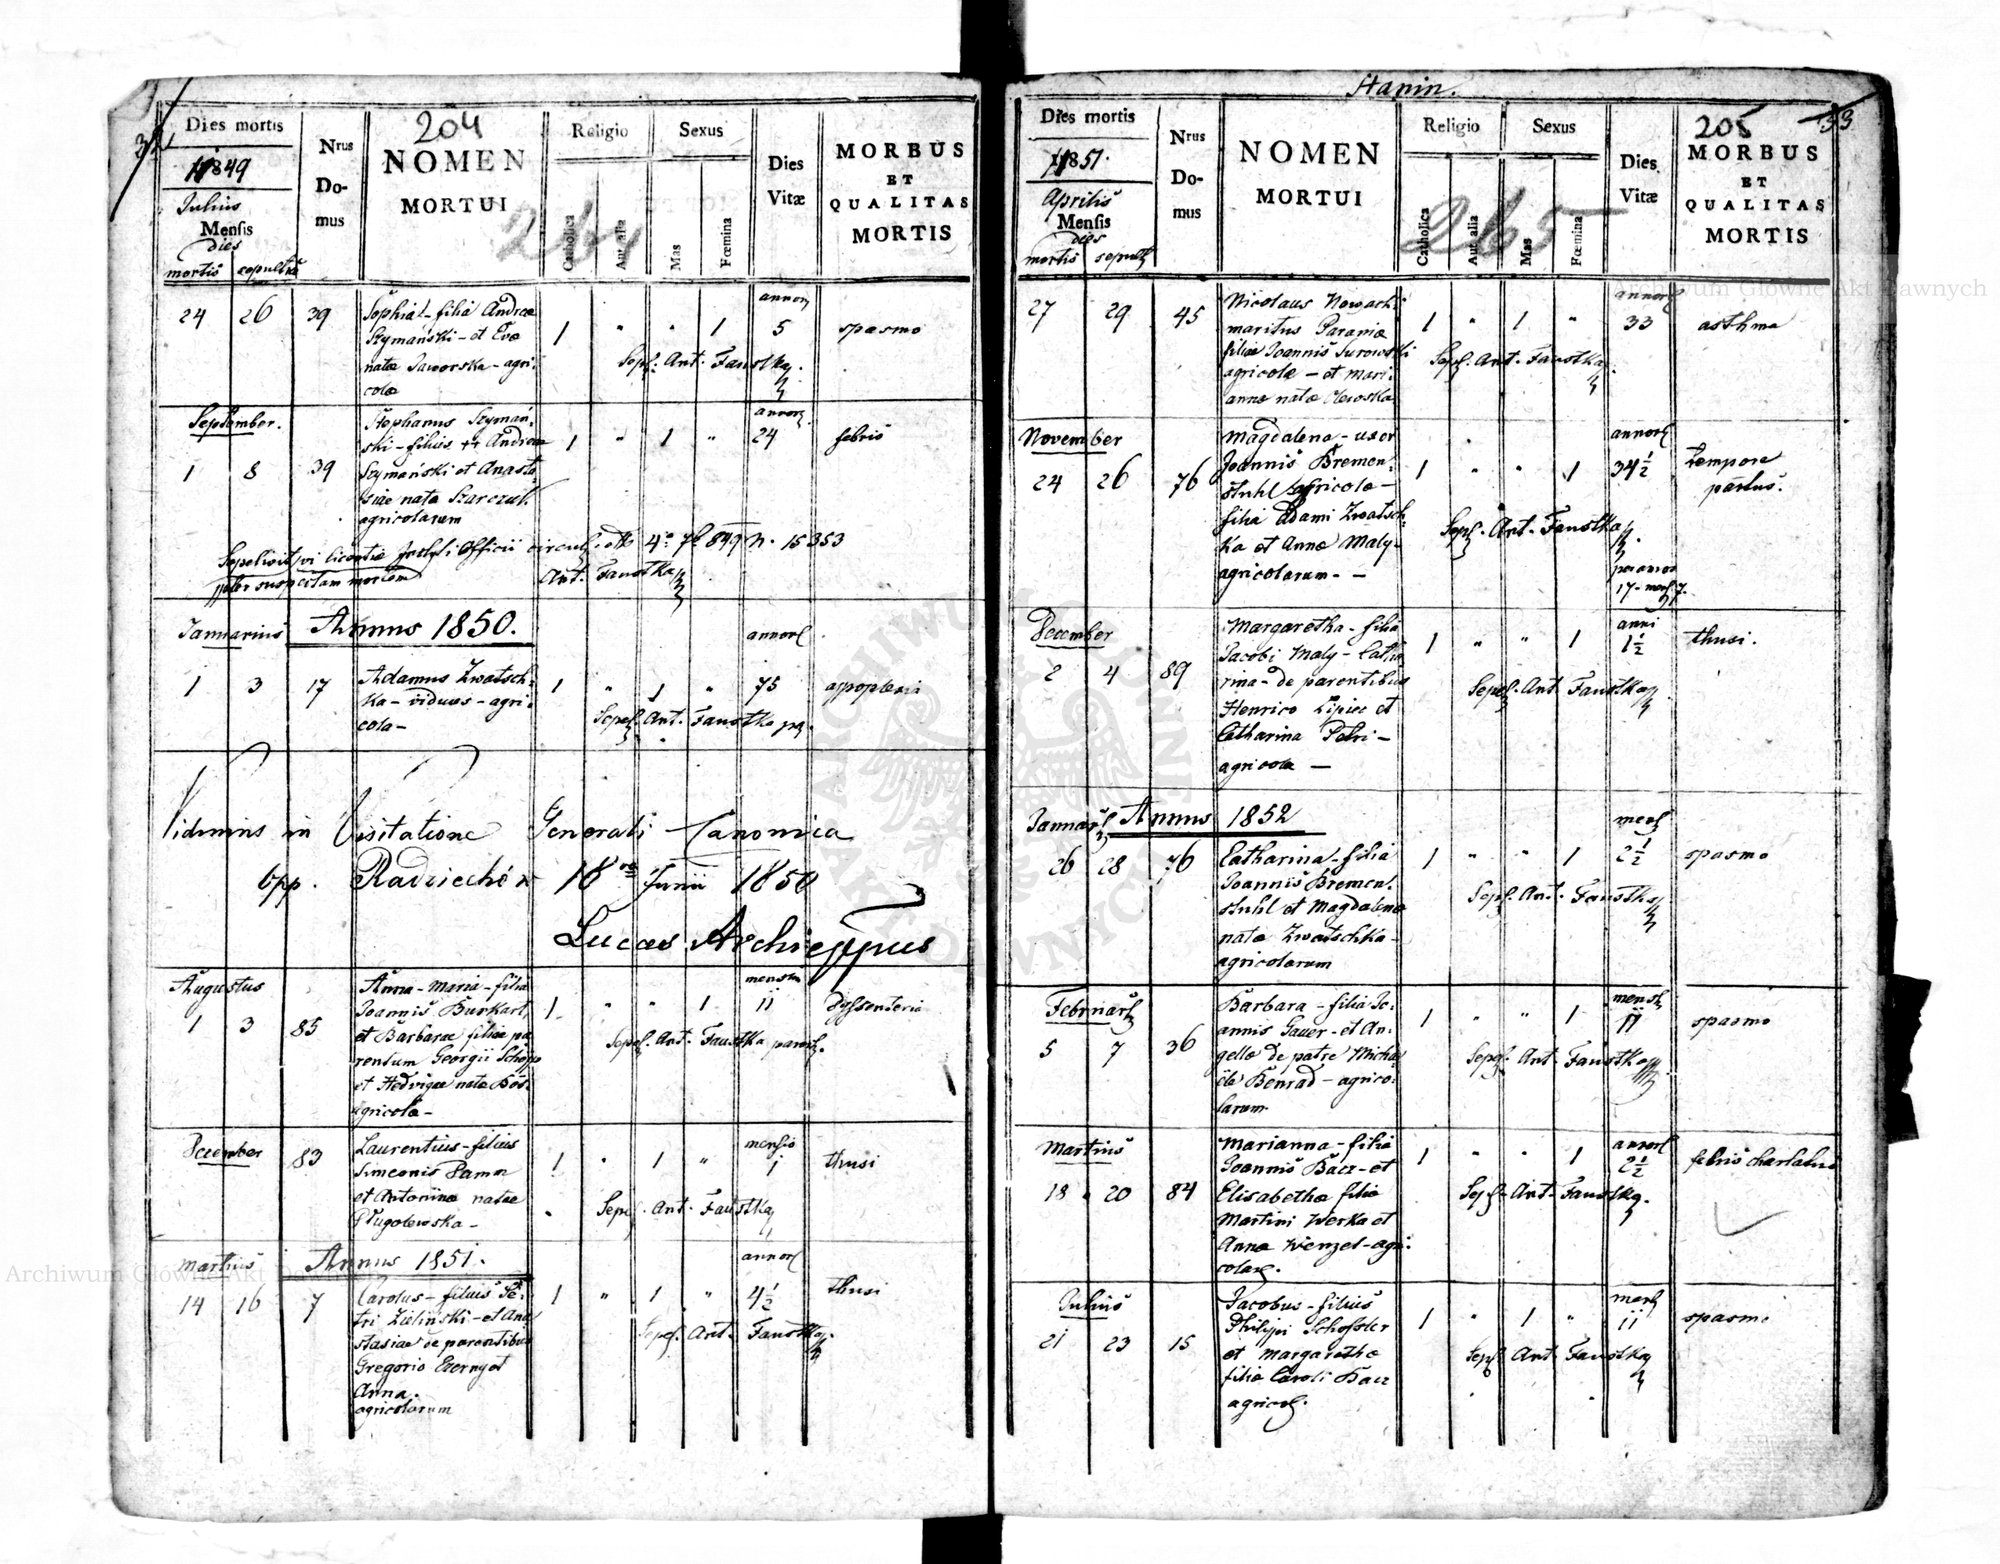 Stanin.
204
264
Dies mortis
1849
Julius
Mensis
dies
mortis sepultræ
Nrus
Do-
mus
NOMEN
MORTUI
Religio
Catholica
Aut alia
Sexus
Mas
Fœmina
Dies
Vitæ
MORBUS
ET
QUALITAS
MORTIS
24 26 39
Sophia - filia Andreæ
Szymański - et Eva
nata Jaworska - agri-
colæ
1 " " 1
annor
5
spasmo
Sepel. Ant. Faustka
September.
1 8 39
Stephanus Szymań-
ski - filius ++ Andreæ
Szymański et Anasta-
siae nata
agricolarum
1 " 1 "
annor
24
febris
Sepelivit vi licentiæ Officii circul. 4ª 7b 849 N. 15353
suspectam mortem
Ant. Faustka
Annus 1850.
Januarius
1 3 17
Adamus Zwatsch-
ka - viduus - agri-
cola -
1 " 1 "
annor
75
appoplexia
Sepel. Ant. Faustka
Vidimus in Visitatione Generali Canonica
Opp. Radziechów 18 Junii 1850
Lucas Archieppus
Augustus
1 3 85
Anna - Maria - filia
Joannis Burkart
et Barbaræ filiæ pa-
rentum Georgii
et Hedvigæ nata
agricolæ -
1 " " 1
mensium
11
dyssenteria
Sepel. Ant. Faustka paroch.
December
83
Laurentius - filius
Simeonis
et Antoninæ natæ
Długolewska -
1 " 1 "
mensis
1
thusi
Sepel. Ant. Faustka
Annus 1851.
Martius
14 16 7
Carolus - filius Pe-
tri Zieliński - et Ana-
stasiae de parentibus
Gregorio Czerny et
Anna.
agricolarum
1 " 1 "
annor
4½
thusi
Sepel. Ant. Faustka
205
33
265
Dies mortis
1851.
Aprilis
Mensis
dies
mortis sepult
Nrus
Do-
mus
NOMEN
MORTUI
Religio
Catholica
Aut alia
Sexus
Mas
Fœmina
Dies
Vitæ
MORBUS
ET
QUALITAS
MORTIS
27 29 45
Nicolaus Nowach
maritus Paraniæ
filiæ Joannis Surowski
agricolæ - et Mari-
annæ natæ
1 " 1 "
annor
33
asthma
Sepel. Ant. Faustka
November
24 26 76
Magdalena - uxor
Joannis Bremen-
stuhl agricolæ -
filia Adami Zwatsch-
ka et Annæ Maly -
agricolarum - -
1 " " 1
annor
34½
tempore
partus.
Sepel. Ant. Faustka
December
2 4 89
Margaretha - filia
Jacobi Maly - Catha-
rina - de parentibus
Henrico Lipiec et
Catharina Petri -
agricolæ -
1 " " 1
anni
1½
thusi.
Sepel. Ant. Faustka
Annus 1852
Januar
26 28 76
Catharina - filia
Joannis Bremen-
stuhl et Magdalenæ
nata Zwatschka -
agricolarum
1 " " 1
2½
spasmo
Sepel. Ant. Faustka
Februar
5 7 36
Barbara - filia Jo-
annis Gauer - et An-
gellæ de patre Micha-
ële Konrad - agrico-
larum
1 " " 1
mens
11
spasmo
Sepel. Ant. Faustka
Martius
18 20 84
Marianna - filia
Joannis Bacz - et
Elisabethæ filiæ
Martini Werka et
Anna Wenzel - agri-
colar.
1 " " 1
annor
2½
Sepel. Ant. Faustka
Julius
21 23 15
Jacobus - filius
Philippi Schossler
et Margarethæ
filiæ Caroli Bacz
agricol.
1 " 1 "
11
spasmo
Sepel. Ant. Faustka
Archiwum Główne Akt Dawnych
Archiwum Główne Akt Dawnych
ARCHIWUM GŁÓWNE AKT DAWNYCH